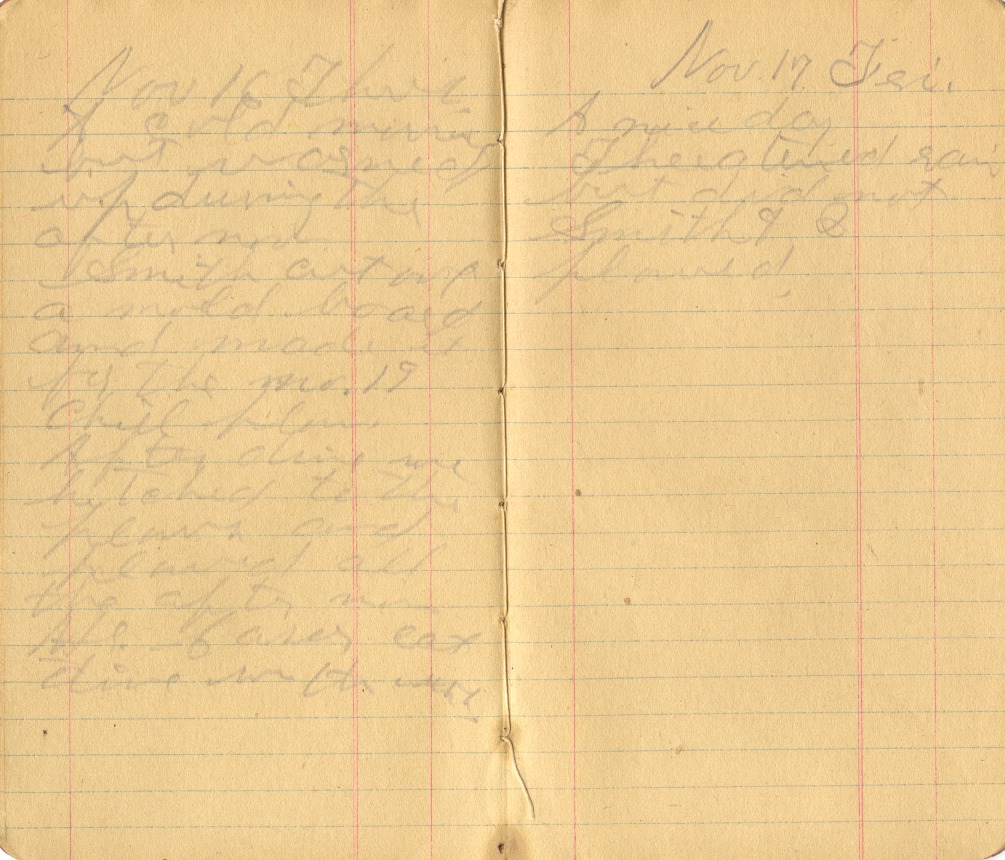 Nov 16 Thur
A cold mornin
but warmed
up during the
after noon
Smith cut out
a mold board
and made it
for the no. 19
Chill plow.
After dine we
hitched to the
plows and
plowed all
the after noon
Mr. eat
dine with us
Nov. 17. Fri.
A nice day
Threatened rain
but did not
Smith & I
plowed.